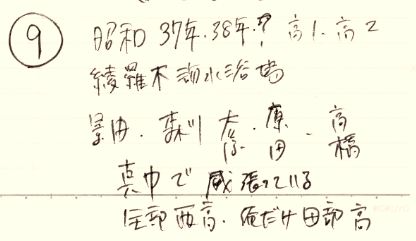 ⑨ 昭和37年.38年? 高1.高2
綾羅木海水浴場
景山.森川 大塚.原田.高橋
真中で威張っている
全部西高.俺だけ田部高